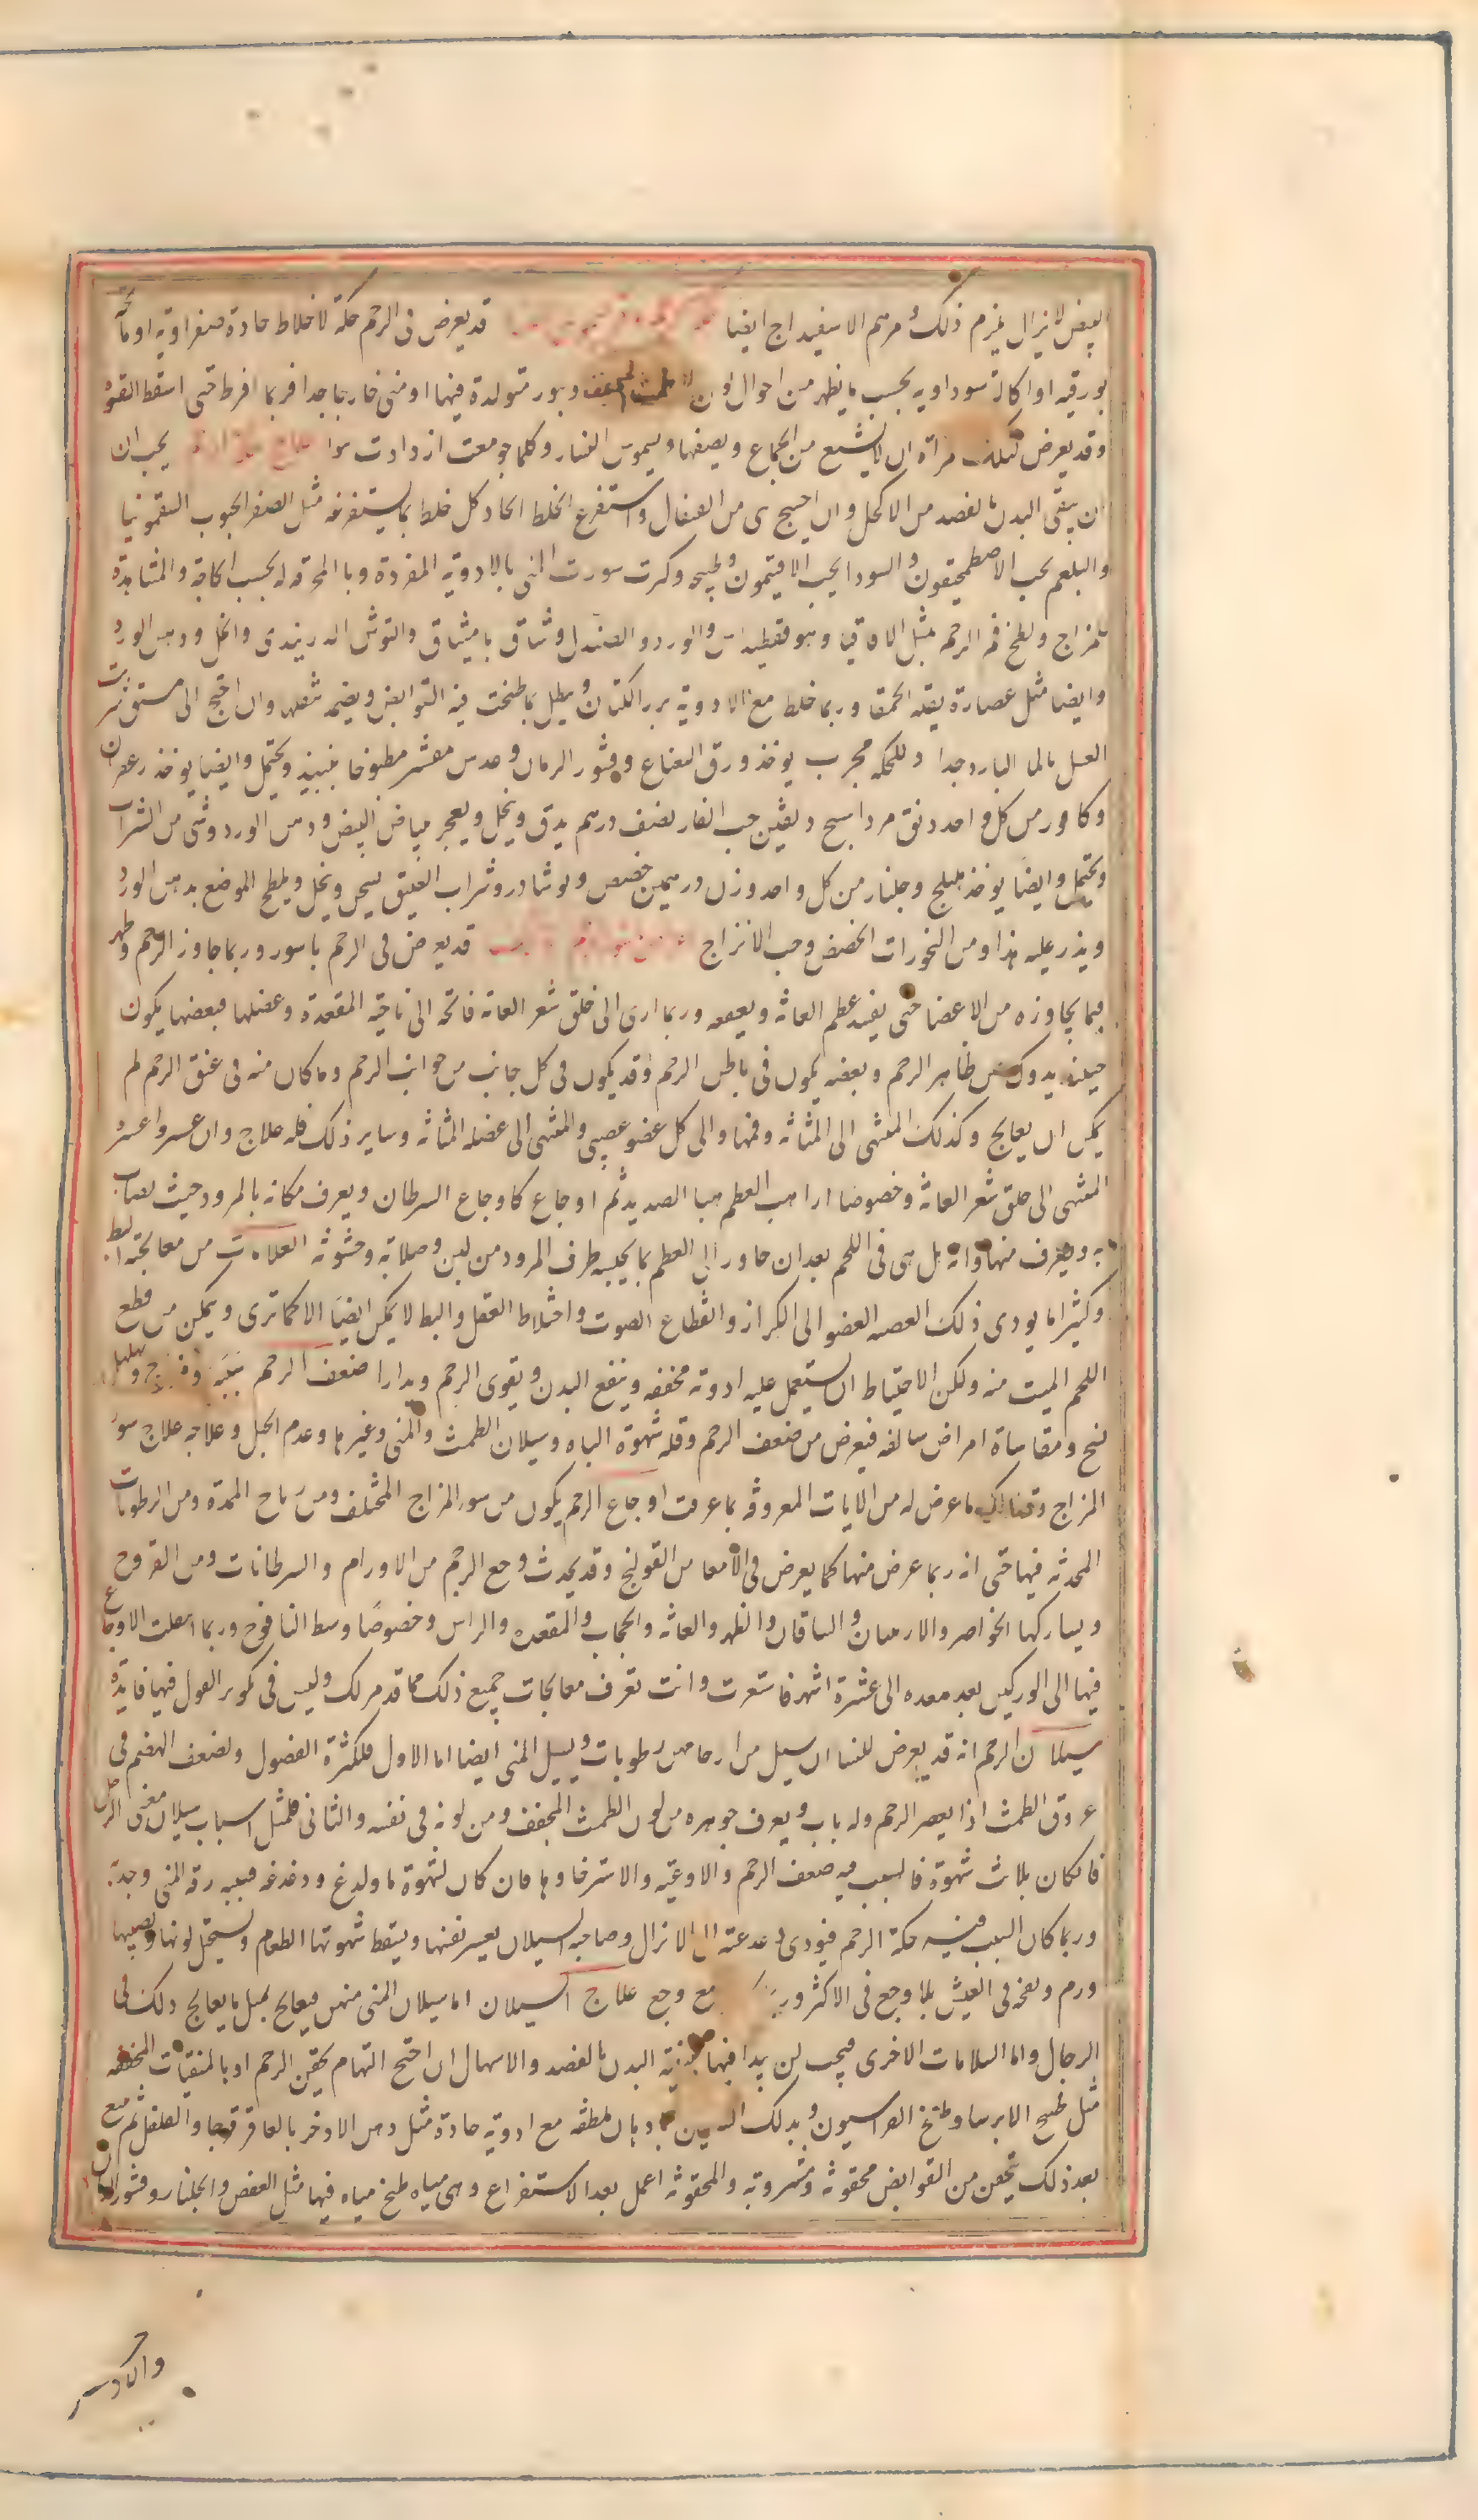 البيض لا يزال يلزم ذلك و مرهم الاسفيداج ايضا قد يعرض فى الرحم حكة لاخلاط حادة صفراوية او مالحة
بورقيه او اكالة سوداويه بحسب ما يظهر من احوال لون الطمث المجفف وبثور متولدة فيها او منى حار بها جدا فربما افرط حتى اسقط القوة
وقد يعرض لتلك مراة ان لا يشبع من الجماع ويصفها ويسموں النساء وكلما جومعت ازدادت سوا علاج يجب ان
ان ينقى البدن بالفصد من الاكحل وان احتيج الى من الصفال واستفرغ الخلط الحاد كل خلط بما يستفرغه مثل الصفرا بحبوب السقمونيا
والبلغم بحب الاصطمحيقون والسودا بحب الافتيمون وطبيخه وكرت سورت المنى بالادوية المفردة وبالمحرقه له بحسب الحاجة والمشاهدة
للمزاج ولطخ فم الرحم بمثل الاقاقيا وهو قسطيداس والورد والصندل وشاق باميثاق والتوش الدربندى والخل ودهن الورد
وايضا مثل عصارة بقلة الحمقا وربما خلط مع الادوية بزر الكتان ويطبل بما طبخت فيه القوابض ويضمد بثفله وان احتيج الى مستقى شربت
العسل بالما البارد جدا وللحكه مجرب يوخذ ورق النعناع وقشور الرمان وعدس مقشر مطبوخا بنبيذ ويحتمل وايضا يوخذ زعفران
وكافور من كل واحد دنق مرداسنج دنقين حب الغار نصف درهم يدق وينخل ويعجن ببياض البيض ودهن الورد وشى من الشراب
ويحتمل وايضا يوخذ هليلج وجلنار من كل واحد وزن درهمين حضض ونوشادر وشراب العتيق يسحق وينخل ويلطخ الموضع بدهن الورد
ويذر عليه هذا ومن البخورات الحضض وحب الاترج قد يعرض فى الرحم باسور وربما جاوز الرحم وظهر
فيما يجاوزه من الاعضا حتى يفسد عظم العانة ويعفنه وربما ارى الى حلق شعر العانة فاتحه الى ناحية المقعدة وعضلها فبعضها يكون
حينئذ يدرك من ظاهر الرحم وبعضه يكون فى باطن الرحم وقد يكون فى كل جانب من جوانب الرحم وما كان منه فى عنق الرحم لم
يمكن ان يعالج وكذلك المنتهى الى المثانة وفمها والى كل عضو عصبى والمنتهى الى عضله المثانة وساير ذلك فله علاج وان عسر واعسره
المنتهى الى حلق شعر العانة وخصوصا اذا اصب العظم هبا الصديد ثم اوجاع كاوجاع السرطان ويعرف مكانه بالمرود حيث يصاب
به ويعرف منها وانه بل هى فى اللحم بعد ان جاور الى العظم بما يحسه طرف المرود من لين وصلابة وخشونة العلامات من معالجته البط
وكثيرا ما يودى ذلك العصبه العضو الى الكزاز وانقطاع الصوت واختلاط العقل والبط لا يمكن ايضا الا كما ترى ويمكن من قطع
اللحم الميت منه ولكن الاحتياط ان يستعمل عليه ادوية مخففه وينفع البدن ويقوى الرحم ويدارا ضعف الرحم سببه سو مزاج وتهلهل
نسج ومقاساة امراض سالفه فيعرض من ضعف الرحم وقلة شهوة الباه وسيلان الطمث والمنى وغيرها وعدم الحبل وعلاجه علاج سو
المزاج وتدارك ما عرض له من الافات المعروفه بما عرفت اوجاع الرحم يكون من سو المزاج المختلف ومن رياح الممددة ومن الرطوبات
المحدثه فيها حتى انه ربما عرض منها كما يعرض فى الامعا من القولنج وقد يحدث وجع الرحم من الاورام والسرطانات ومن القروح
ويشاركها الخواصر والاربيتان والساقان والظهر والعانه والحجاب والمقعدة والراس وخصوصا وسط اليافوخ وربما انتقلت الاوجاع
فيها الى الوركين بعد مده الى عشرة اشهر فاستقرت وانت تعرف معالجات جميع ذلك مما قد مر لك وليس فى تكرير القول فيها فايدة
سيلان الرحم انه قد يعرض للنسا ان يسيل من ارحامهن رطوبات ويسيل المنى ايضا اما الاول فلكثرة الفضول ولضعف الهضم فى
عروق الطمث اذا يعصر الرحم وله باب ويعرف جوهره من لون الطمث المجفف ومن لونه فى نفسه والثانى فلمثل اسباب سيلان منى الرجل
فان كان بلاث شهوة فالسبب فيه ضعف الرحم والاوعية والاسترخا وبها فان كان لشهوة ما ولدغ ودغدغه فسببه رقه المنى وحدته
وربما كان السبب فيه حكة الرحم فيودى دغدغته الى الانزال وصاحبه السيلان يعسر نفسها ويسقط شهوتها الطعام ويستحيل لونها ويصيبها
ورم ونفخه فى العين بلا وجع فى الاكثر وربما مع وجع علاج السيلان اما سيلان المنى منهن فيعالج بمثل ما يعالج ذلك فى
الرجال واما السلامات الاخرى فيجب ان يبدا فيها بتنقية البدن بالفصد والاسهال ان احتيج اليهما ثم يحقن الرحم او بالمنقيات المخففه
مثل طبيخ الايرسا وطبيخ الفراسيون ويدلك الساقين بادهان ملطفه مع ادوية حادة مثل دهن الاذخر بالعاقر قرحا والفلفل ثم مع
بعد ذلك يحقن من القوابض محقونه ومشروبة والمحقونه اعمل بعد الاستفراغ وهى مياه طبخ مياه فيها مثل العفص والجلنار وقشور الرمان
والاذخر